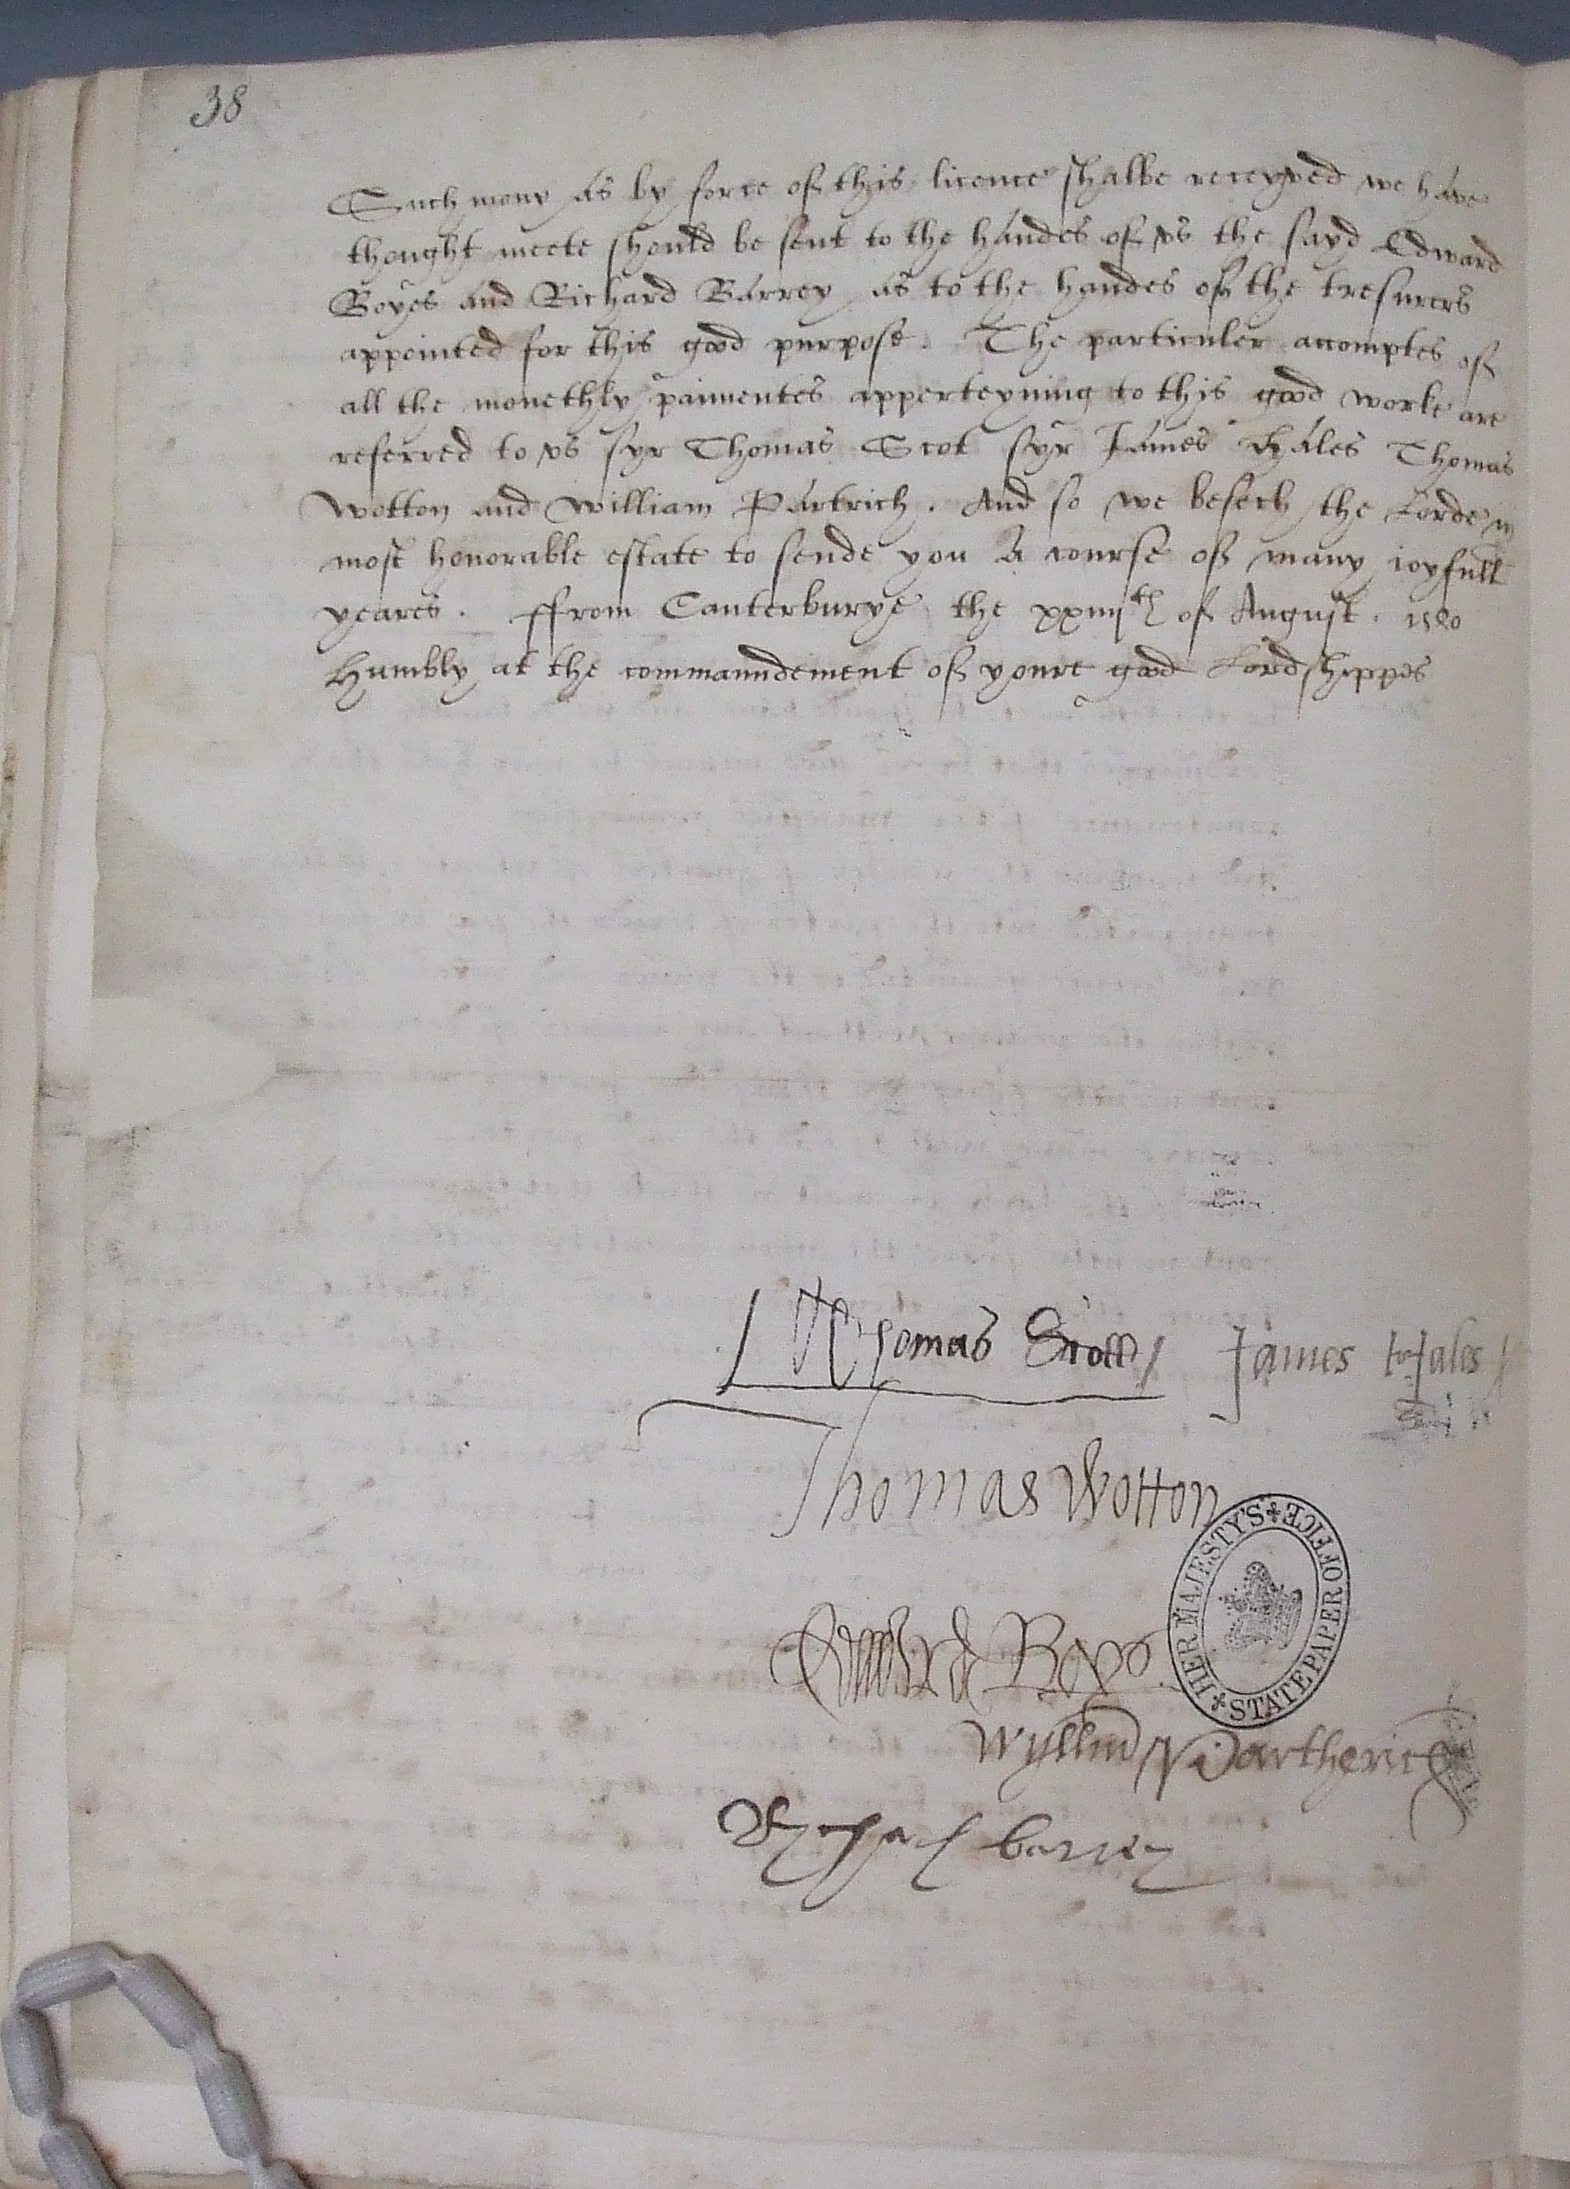 38
Such mony as by force of this licence shalbe receyved we have
thought meete should be sent to the handes of vs the sayd Edward
Boyes and Richard Barrey as to the handes of the tresurers
appointed for this good purpose. The particuler accomptes of
all the monethly paimentes apperteyning to this good worke are
referred to vs syr Thomas Scot syr James Hales Thomas
Wotton and William Partrich. And so we besech the Lorde in
most honorable estate to sende you a course of many ioyfull
yeares. ffrom Canterburye the xxiiijth of August. 1580
Humbly at the commaundement of youre good Lordshippes
Thomas Scott James Hales
Thomas Wotton
Edward Boys
Wyllm Partheriche
Rychard barrey
HER MAJESTY'S STATE PAPER OFFICE